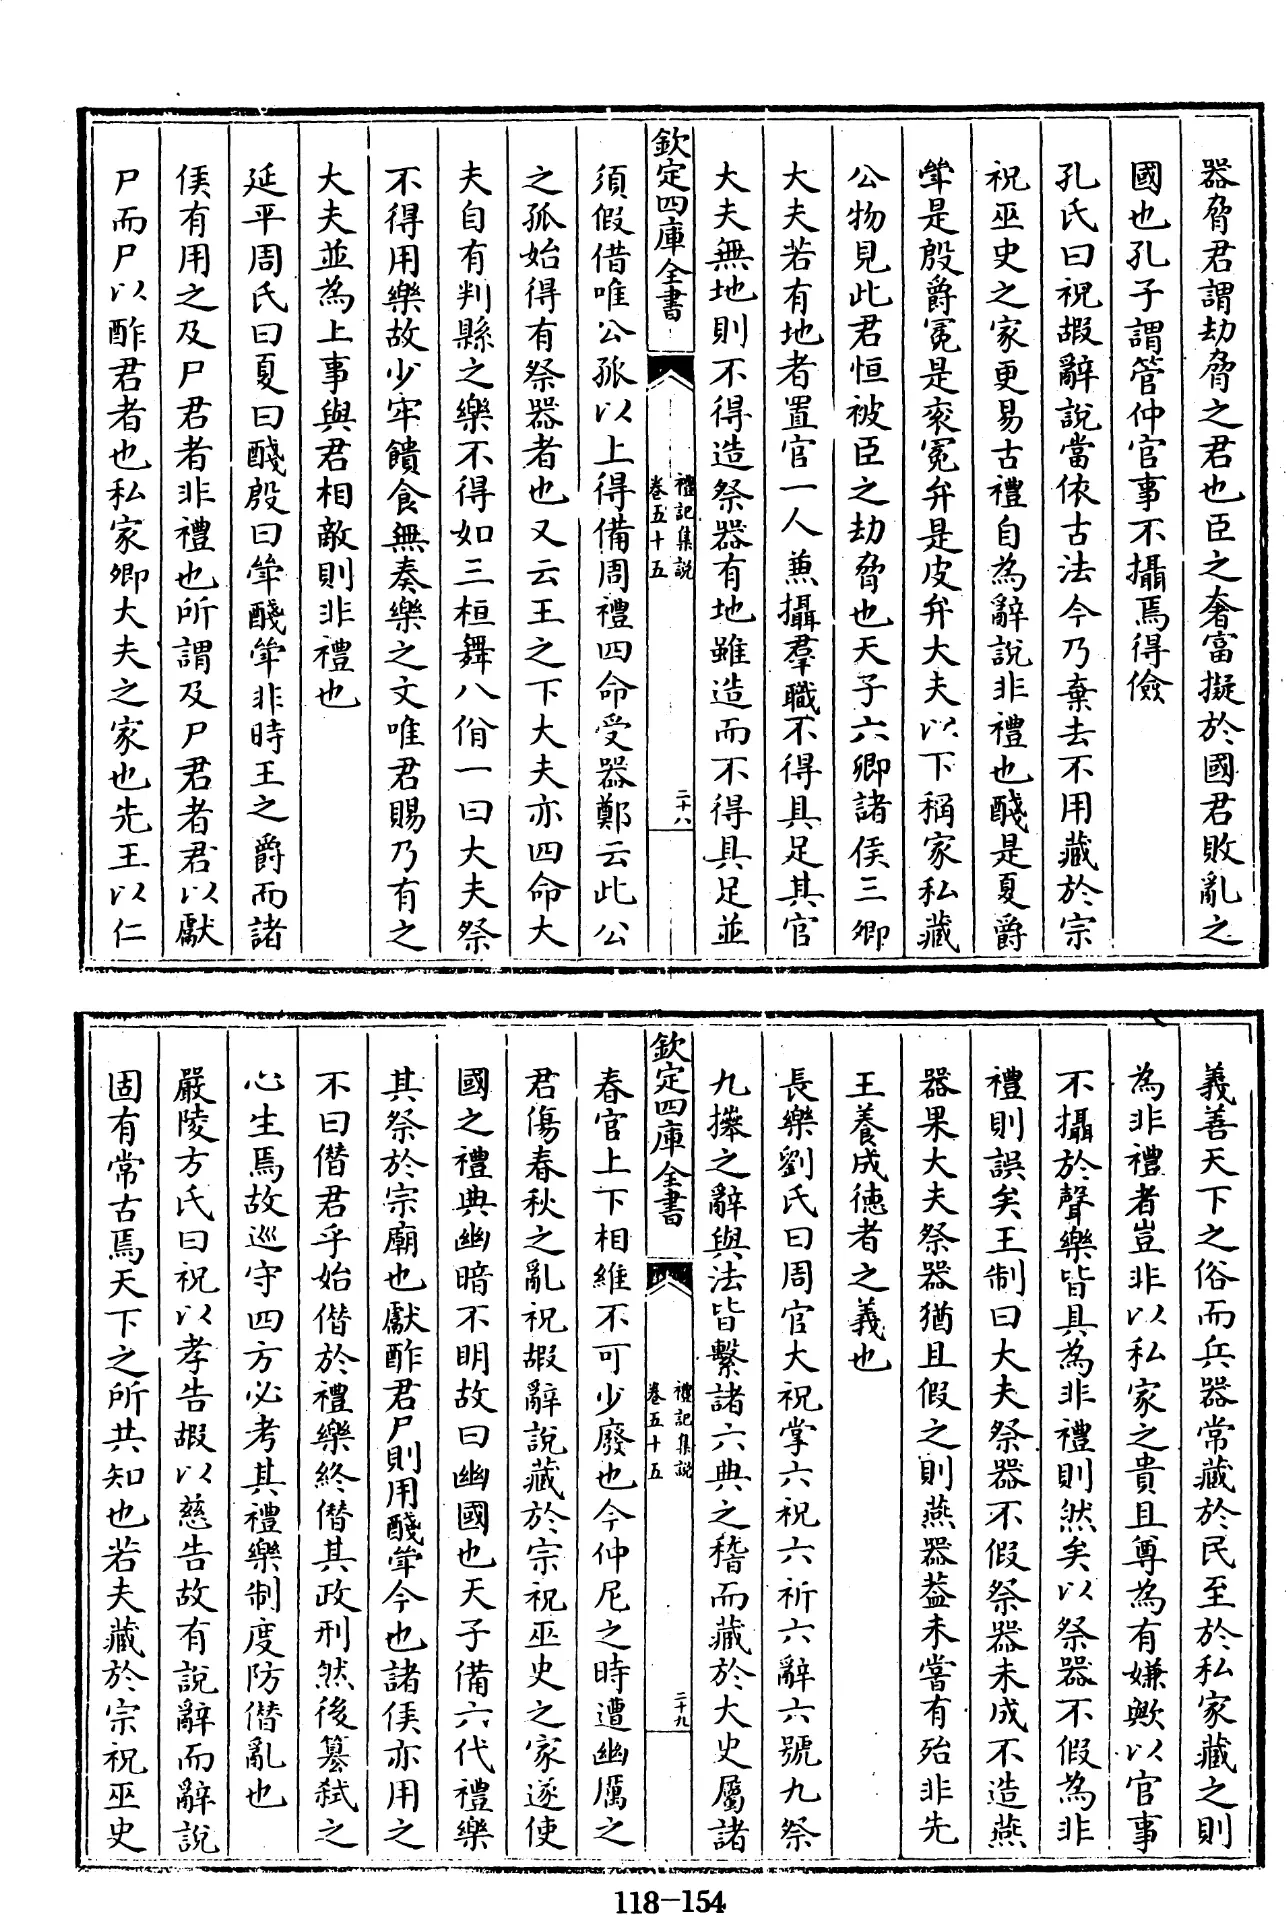 器脅君謂劫脅之君也臣之奢富擬於國君敗亂之
國也孔子謂管仲官事不攝焉得儉
孔氏曰祝嘏辭說當依古法今乃棄去不用藏於宗
祝巫史之家更易古禮自為辭說非禮也醆是夏爵
斝是殷爵冕是衮冕弁是皮弁大夫以下稱家私藏
公物見此君恒被臣之劫脅也天子六卿諸侯三卿
大夫若有地者置官一人兼攝羣職不得具足其官
大夫無地則不得造祭器有地雖造而不得具足並
欽定四庫全書
禮記集說
卷五十五
二十八
須假借唯公孤以上得備周禮四命受器鄭云此公
之孤始得有祭器者也又云王之下大夫亦四命大
夫自有判縣之樂不得如三桓舞八佾一曰大夫祭
不得用樂故少牢饋食無奏樂之文唯君賜乃有之
大夫並為上事與君相敵則非禮也
延平周氏曰夏曰醆殷曰斝醆斝非時王之爵而諸
侯有用之及尸君者非禮也所謂及尸君者君以獻
尸而尸以酢君者也私家卿大夫之家也先王以仁
義善天下之俗而兵器常藏於民至於私家藏之則
為非禮者豈非以私家之貴且尊為有嫌歟以官事
不攝於聲樂皆具為非禮則然矣以祭器不假為非
禮則誤矣王制曰大夫祭器不假祭器未成不造燕
器果大夫祭器猶且假之則燕器葢未嘗有殆非先
王養成德者之義也
長樂劉氏曰周官大祝掌六祝六祈六辭六號九祭
九㩧之辭與法皆繫諸六典之稽而藏於大史屬諸
欽定四庫全書
禮記集說
卷五十五
二十九
春官上下相維不可少廢也今仲尼之時遭幽厲之
君傷春秋之亂祝嘏辭說藏於宗祝巫史之家遂使
國之禮典幽暗不明故曰幽國也天子備六代禮樂
其祭於宗廟也獻酢君尸則用醆斝今也諸侯亦用之
不曰僭君乎始僭於禮樂終僭其政刑然後簒弒之
心生焉故巡守四方必考其禮樂制度防僭亂也
嚴陵方氏曰祝以孝告嘏以慈告故有說辭而辭說
固有常古焉天下之所共知也若夫藏於宗祝巫史
118-154